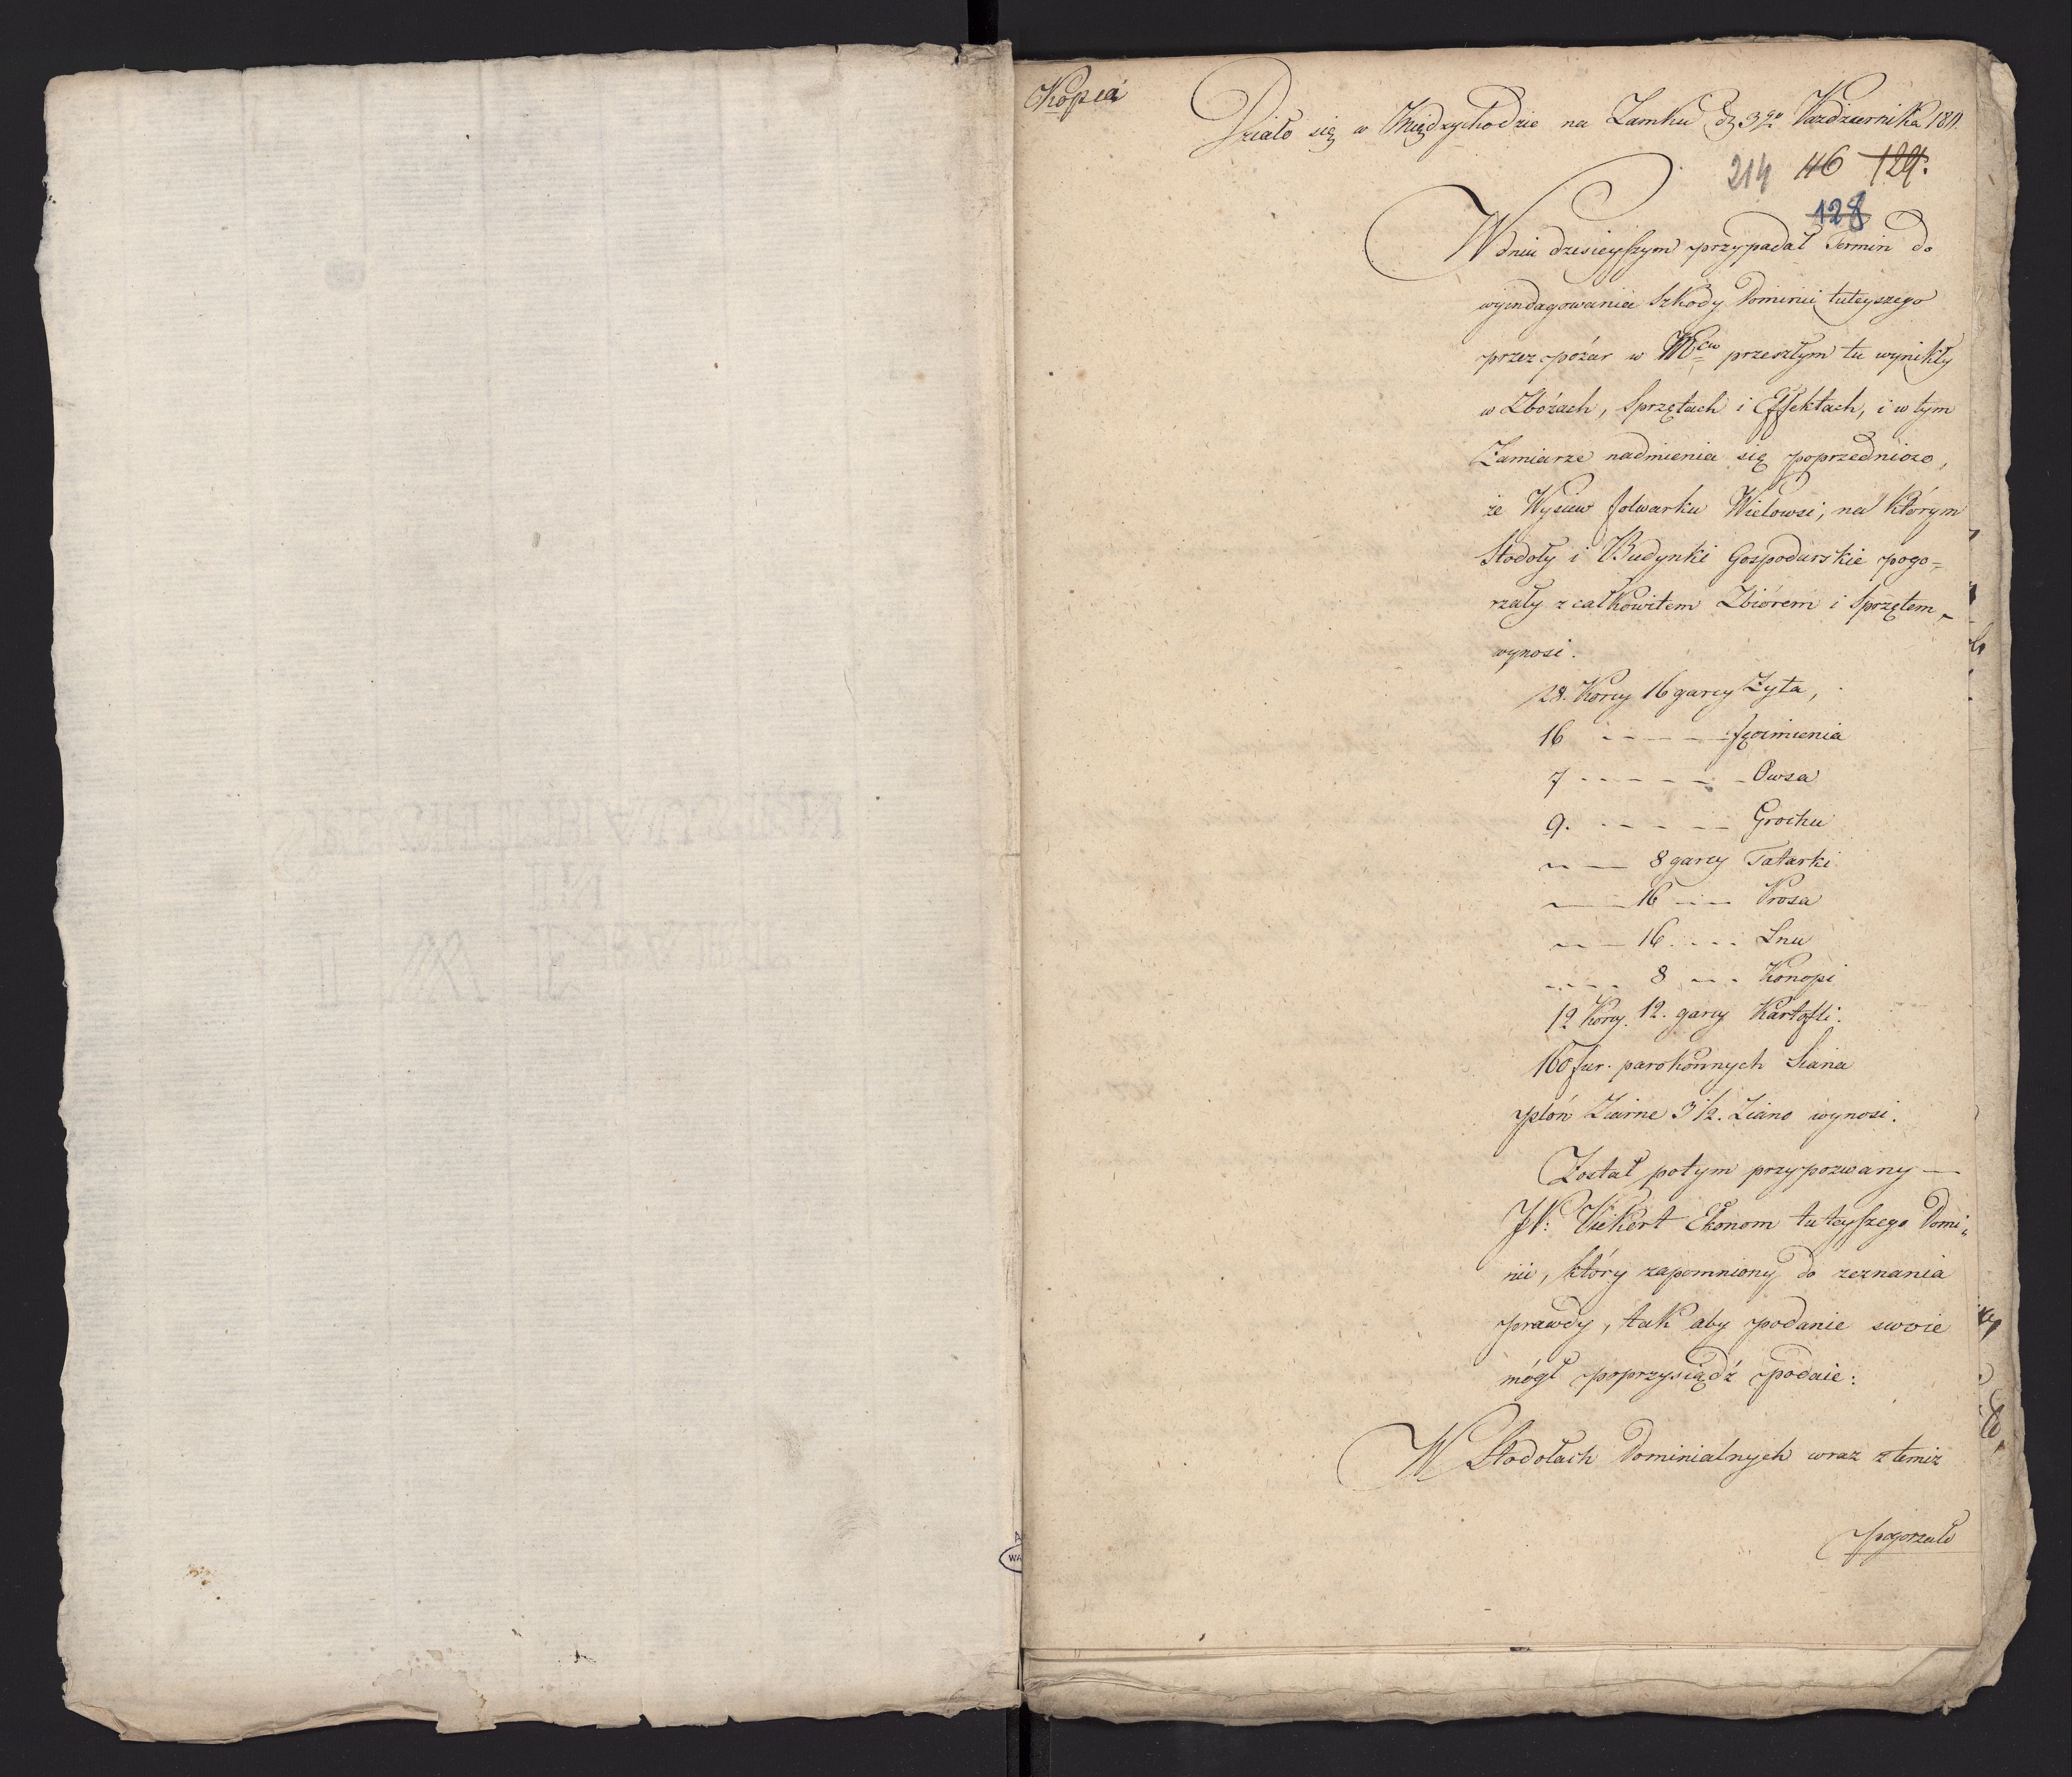 Kopia
Działo się w Międzychodzie na Zamku d. 3go Października 1811.
214 116 129.
128
W dniu dzisieyszym przypadał Termin do
wyindagowania Szkody Dominii tuteyszego
przez pożar w Mcu przeszłym tu wynikły
w Zbożach, Sprzętach i Effektach, i w tym
Zamiarze nadmienia się poprzedniczo,
że Wysiew folwarku Wielowsi, na którym
Stodoły i Budynki Gospodarskie pogo=
rzały z całkowitem Zbiórem i Sprzętem
wynosi.
28. Korcy 16 garcy Żyta,
16 - - - - - Jęczmienia
7 - - - - - - Owsa
9. - - - - - Grochu
- - 8 garcy Tatarki
- - 16 - - Prosa
- - 16 . . . . Lnu
- - - 8 - - - Konopi
12 Korcy. 12. garcy Kartofli.
160 fur. parokonnych Siana
plon Ziarne 3 1/2. Ziano wynosi.
Został potym przypozwany —
JP. Viekert Ekonom tuteyszego Domi=
nii, który zapomniony do zeznania
prawdy, tak aby podanie swoie
mógł poprzysiądź podaie:
W Stodołach Dominialnych wraz z temiż
pogorzało